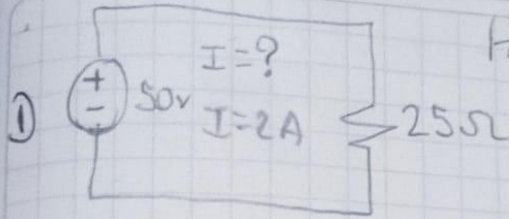 I=?
①
+
-
50v
I=2A
25Ω